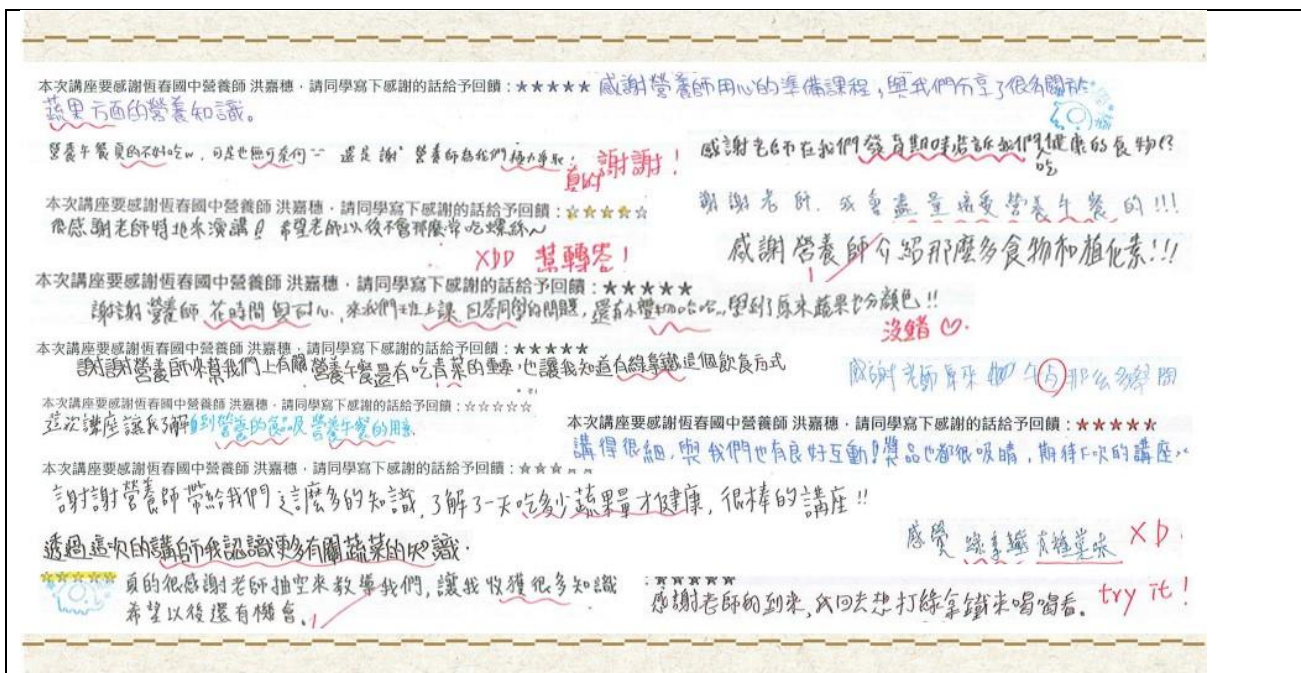 本次講座要感謝恆春國中營養師 洪嘉穗，請同學寫下感謝的話給予回饋：★★★★★ 感謝營養師用心的準備課程，與我們分享了很多關於
蔬果方面的營養知識。
營養午餐真的不好吃w，可是也無可奈何 還是謝謝營養師為我們極力爭取！
真的 謝謝！
感謝老師在我們發育期時告訴我們吃健康的食物!?
本次講座要感謝恆春國中營養師 洪嘉穗，請同學寫下感謝的話給予回饋：☆☆☆☆☆
很感謝老師特地來演講！希望老師以後不會那麼常吃螺絲～
XDD 幫轉答！
謝謝老師，我會盡量接受營養午餐的!!!
感謝營養師介紹那麼多食物和植化素!!!
本次講座要感謝恆春國中營養師 洪嘉穗，請同學寫下感謝的話給予回饋：★★★★★
謝謝營養師花時間與耐心，來我們班上課，回答同學的問題，還有小禮物哈哈，學到了原來蔬果也分顏色!!
沒錯♡.
本次講座要感謝恆春國中營養師 洪嘉穗，請同學寫下感謝的話給予回饋：★★★★★
謝謝營養師來幫我們上有關營養午餐還有吃青菜的重要，也讓我知道有綠拿鐵這個飲食方式
感謝老師
本次講座要感謝恆春國中營養師 洪嘉穗，請同學寫下感謝的話給予回饋：☆☆☆☆☆
這次講座讓我了解到營養的食品及營養午餐的用意
本次講座要感謝恆春國中營養師 洪嘉穗，請同學寫下感謝的話給予回饋：★★★★★
講得很細，與我們也有良好互動！獎品也都很吸睛，期待下次的講座
本次講座要感謝恆春國中營養師 洪嘉穗，請同學寫下感謝的話給予回饋：☆☆☆☆☆
謝謝營養師帶給我們這麼多的知識，了解了一天吃多少蔬果量才健康，很棒的講座!!
透過這次的講師我認識更多有關蔬菜的知識.
感覺綠拿鐵有種菜味 XD.
☆☆☆☆☆ 真的很感謝老師抽空來教導我們，讓我收獲很多知識
希望以後還有機會。
：★★★★★
感謝老師的到來，我回去想打綠拿鐵來喝喝看。 try it！